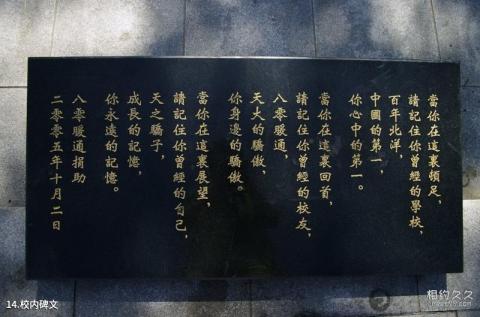 當你在這裏頓足，
請記住你曾經的學校，
百年北洋，
中國的第一，
你心中的第一。
當你在這裏回首，
請記住你曾經的校友，
八零暖通，
天大的驕傲，
你身邊的驕傲。
當你在這裏展望，
請記住你曾經的自己，
天之驕子，
成長的記憶，
你永遠的記憶。
八零暖通捐助
二零零五年十月二日
14.校内碑文
相约久久